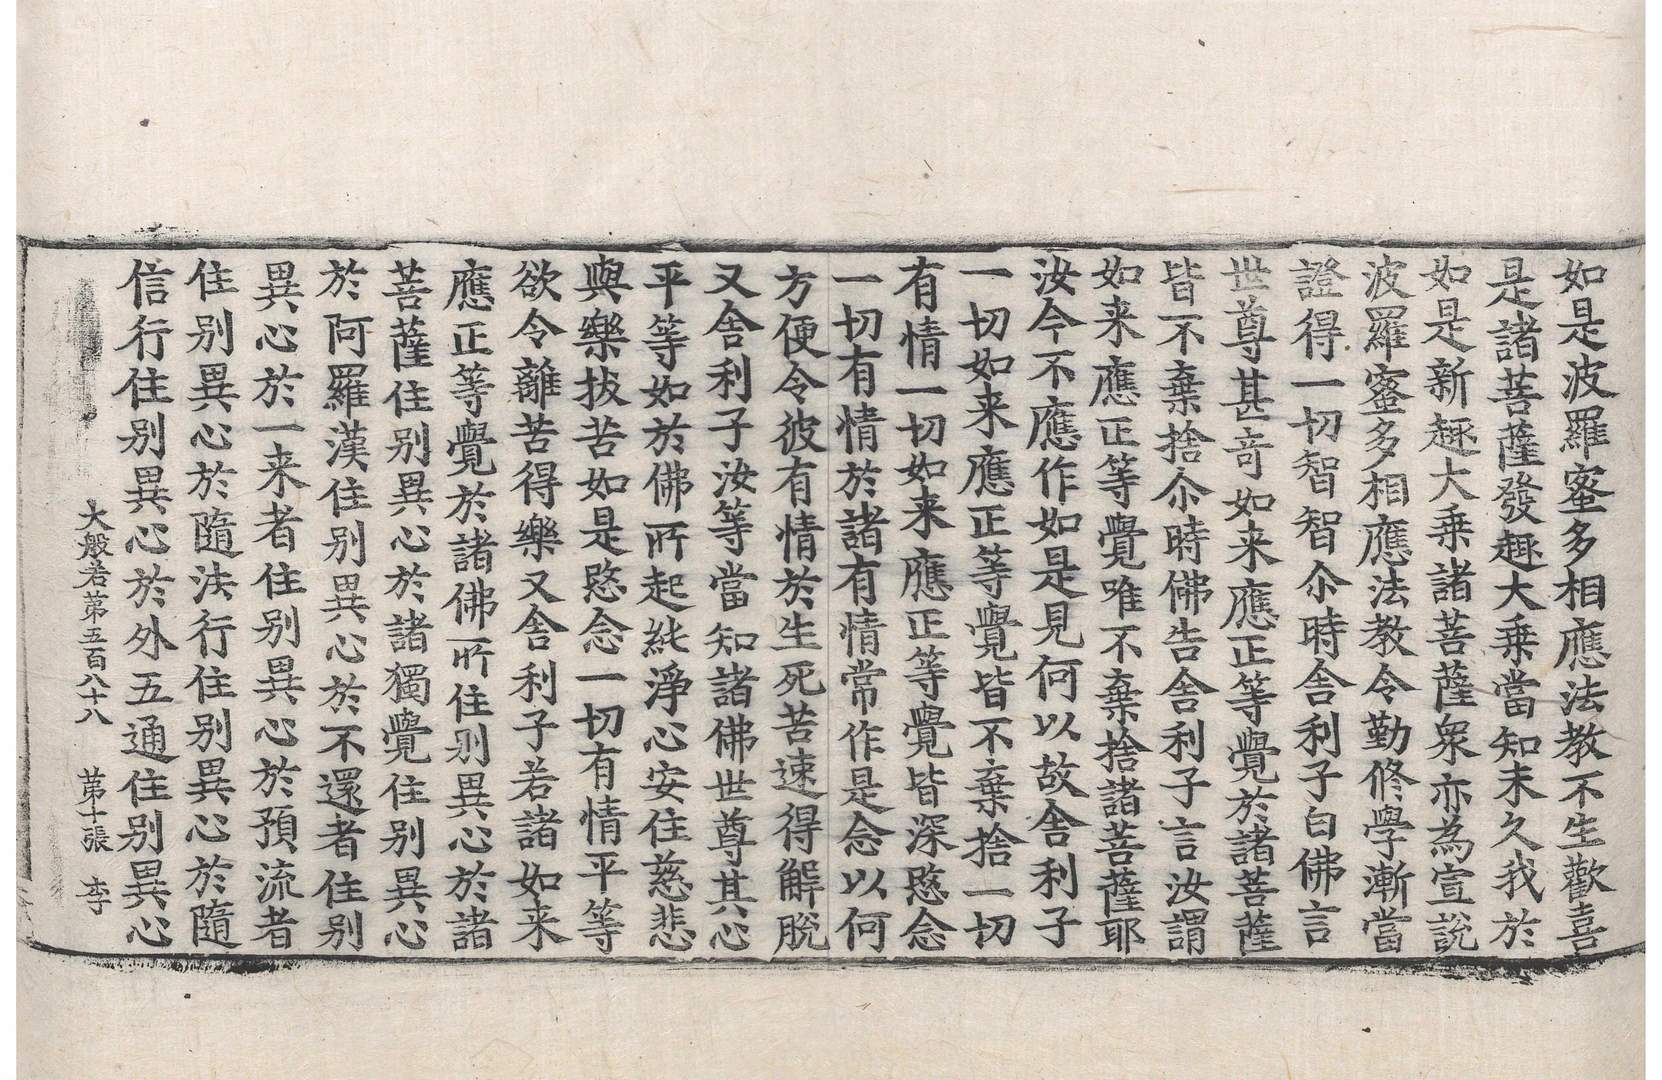 如是波羅蜜多相應法教不生歡喜
是諸菩薩發趣大乗當知未久我於
如是新趣大乗諸菩薩衆亦為宣說
波羅蜜多相應法教令勤修學漸當
證得一切智智尒時舎利子白佛言
世尊甚奇如来應正等覺於諸菩薩
皆不棄捨尒時佛告舎利子言汝謂
如来應正等覺唯不棄捨諸菩薩耶
汝今不應作如是見何以故舎利子
一切如来應正等覺皆不棄捨一切
有情一切如来應正等覺皆深愍念
一切有情於諸有情常作是念以何
方便令彼有情於生死苦速得解脫
又舎利子汝等當知諸佛世尊其心
平等如於佛所起純淨心安住慈悲
與樂拔苦如是愍念一切有情平等
欲令離苦得樂又舎利子若諸如来
應正等覺於諸佛所住別異心於諸
菩薩住別異心於諸獨覺住別異心
於阿羅漢住別異心於不還者住別
異心於一来者住別異心於預流者
住別異心於隨法行住別異心於隨
信行住別異心於外五通住別異心
大般若第五百八十八　第十張　李